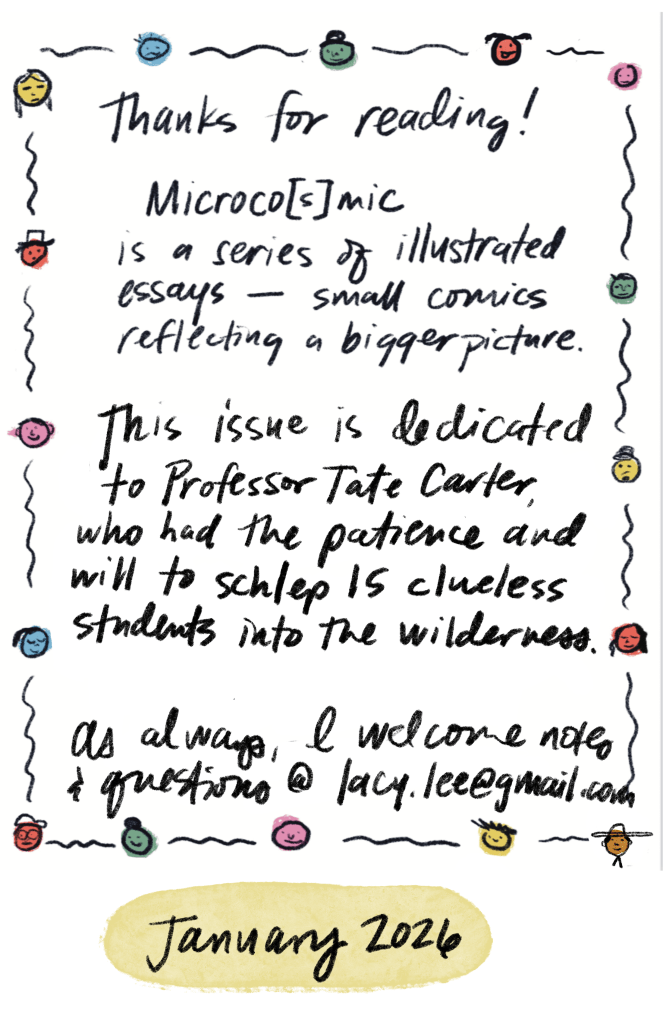 Thanks for reading!
Microco[s]mic
is a series of illustrated
essays — small comics
reflecting a bigger picture.
This issue is dedicated
to Professor Tate Carter,
who had the patience and
will to schlep 15 clueless
students into the wilderness.
As always, I welcome notes
& questions @ lacy.lee@gmail.com
January 2026